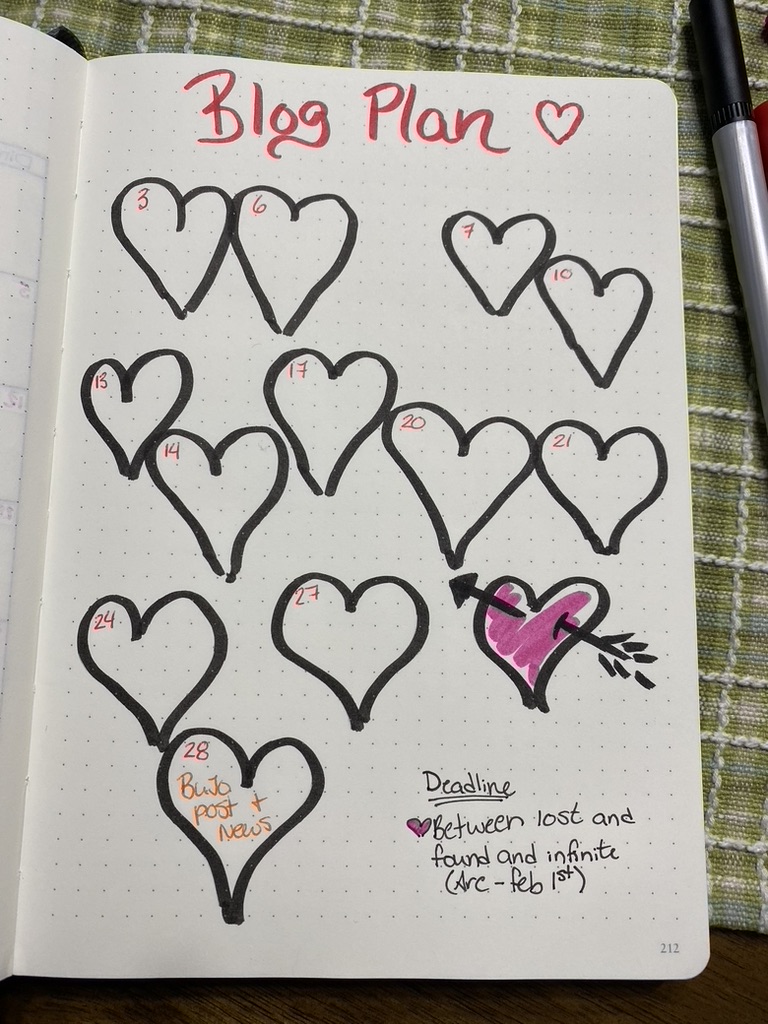 Blog Plan
3
6
7
10
13
17
14
20
21
24
27
28
BuJo
post +
News
Deadline
Between lost and
found and infinite
(Arc - feb 1st)
212